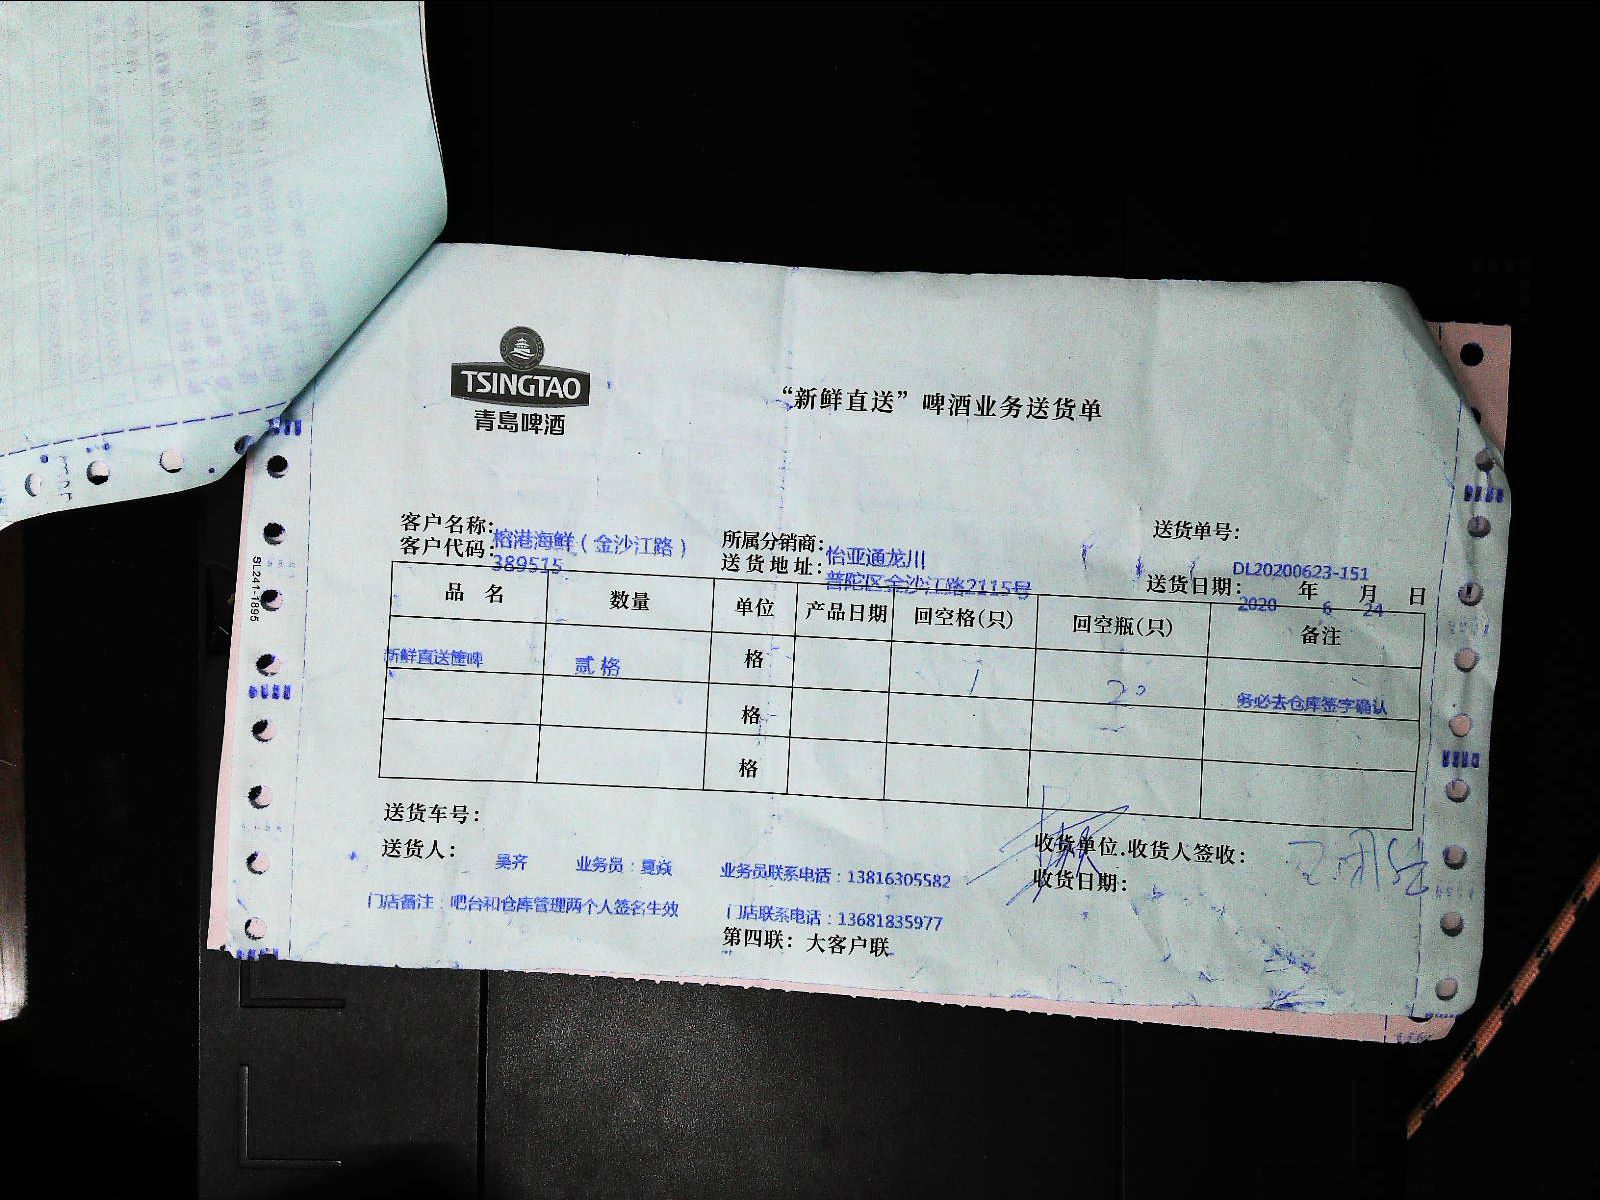 TSINGTAO
青島啤酒
“新鲜直送”啤酒业务送货单
客户名称: 榕港海鲜（金沙江路） 所属分销商: 怡亚通龙川 送货单号: DL20200623-151
客户代码: 389515 送货地址: 普陀区金沙江路2115号 送货日期: 2020 年 6 月 24 日
品 名 数量 单位 产品日期 回空格(只) 回空瓶(只) 备注
新鲜直送箽啤 贰格 格 1 20 务必去仓库签字确认
格
格
送货车号:
送货人: 吴齐 业务员:夏焱 业务员联系电话:13816305582 收货单位.收货人签收:
收货日期:
门店备注:吧台和仓库管理两个人签名生效 门店联系电话:13681835977
第四联: 大客户联
SL241-1895